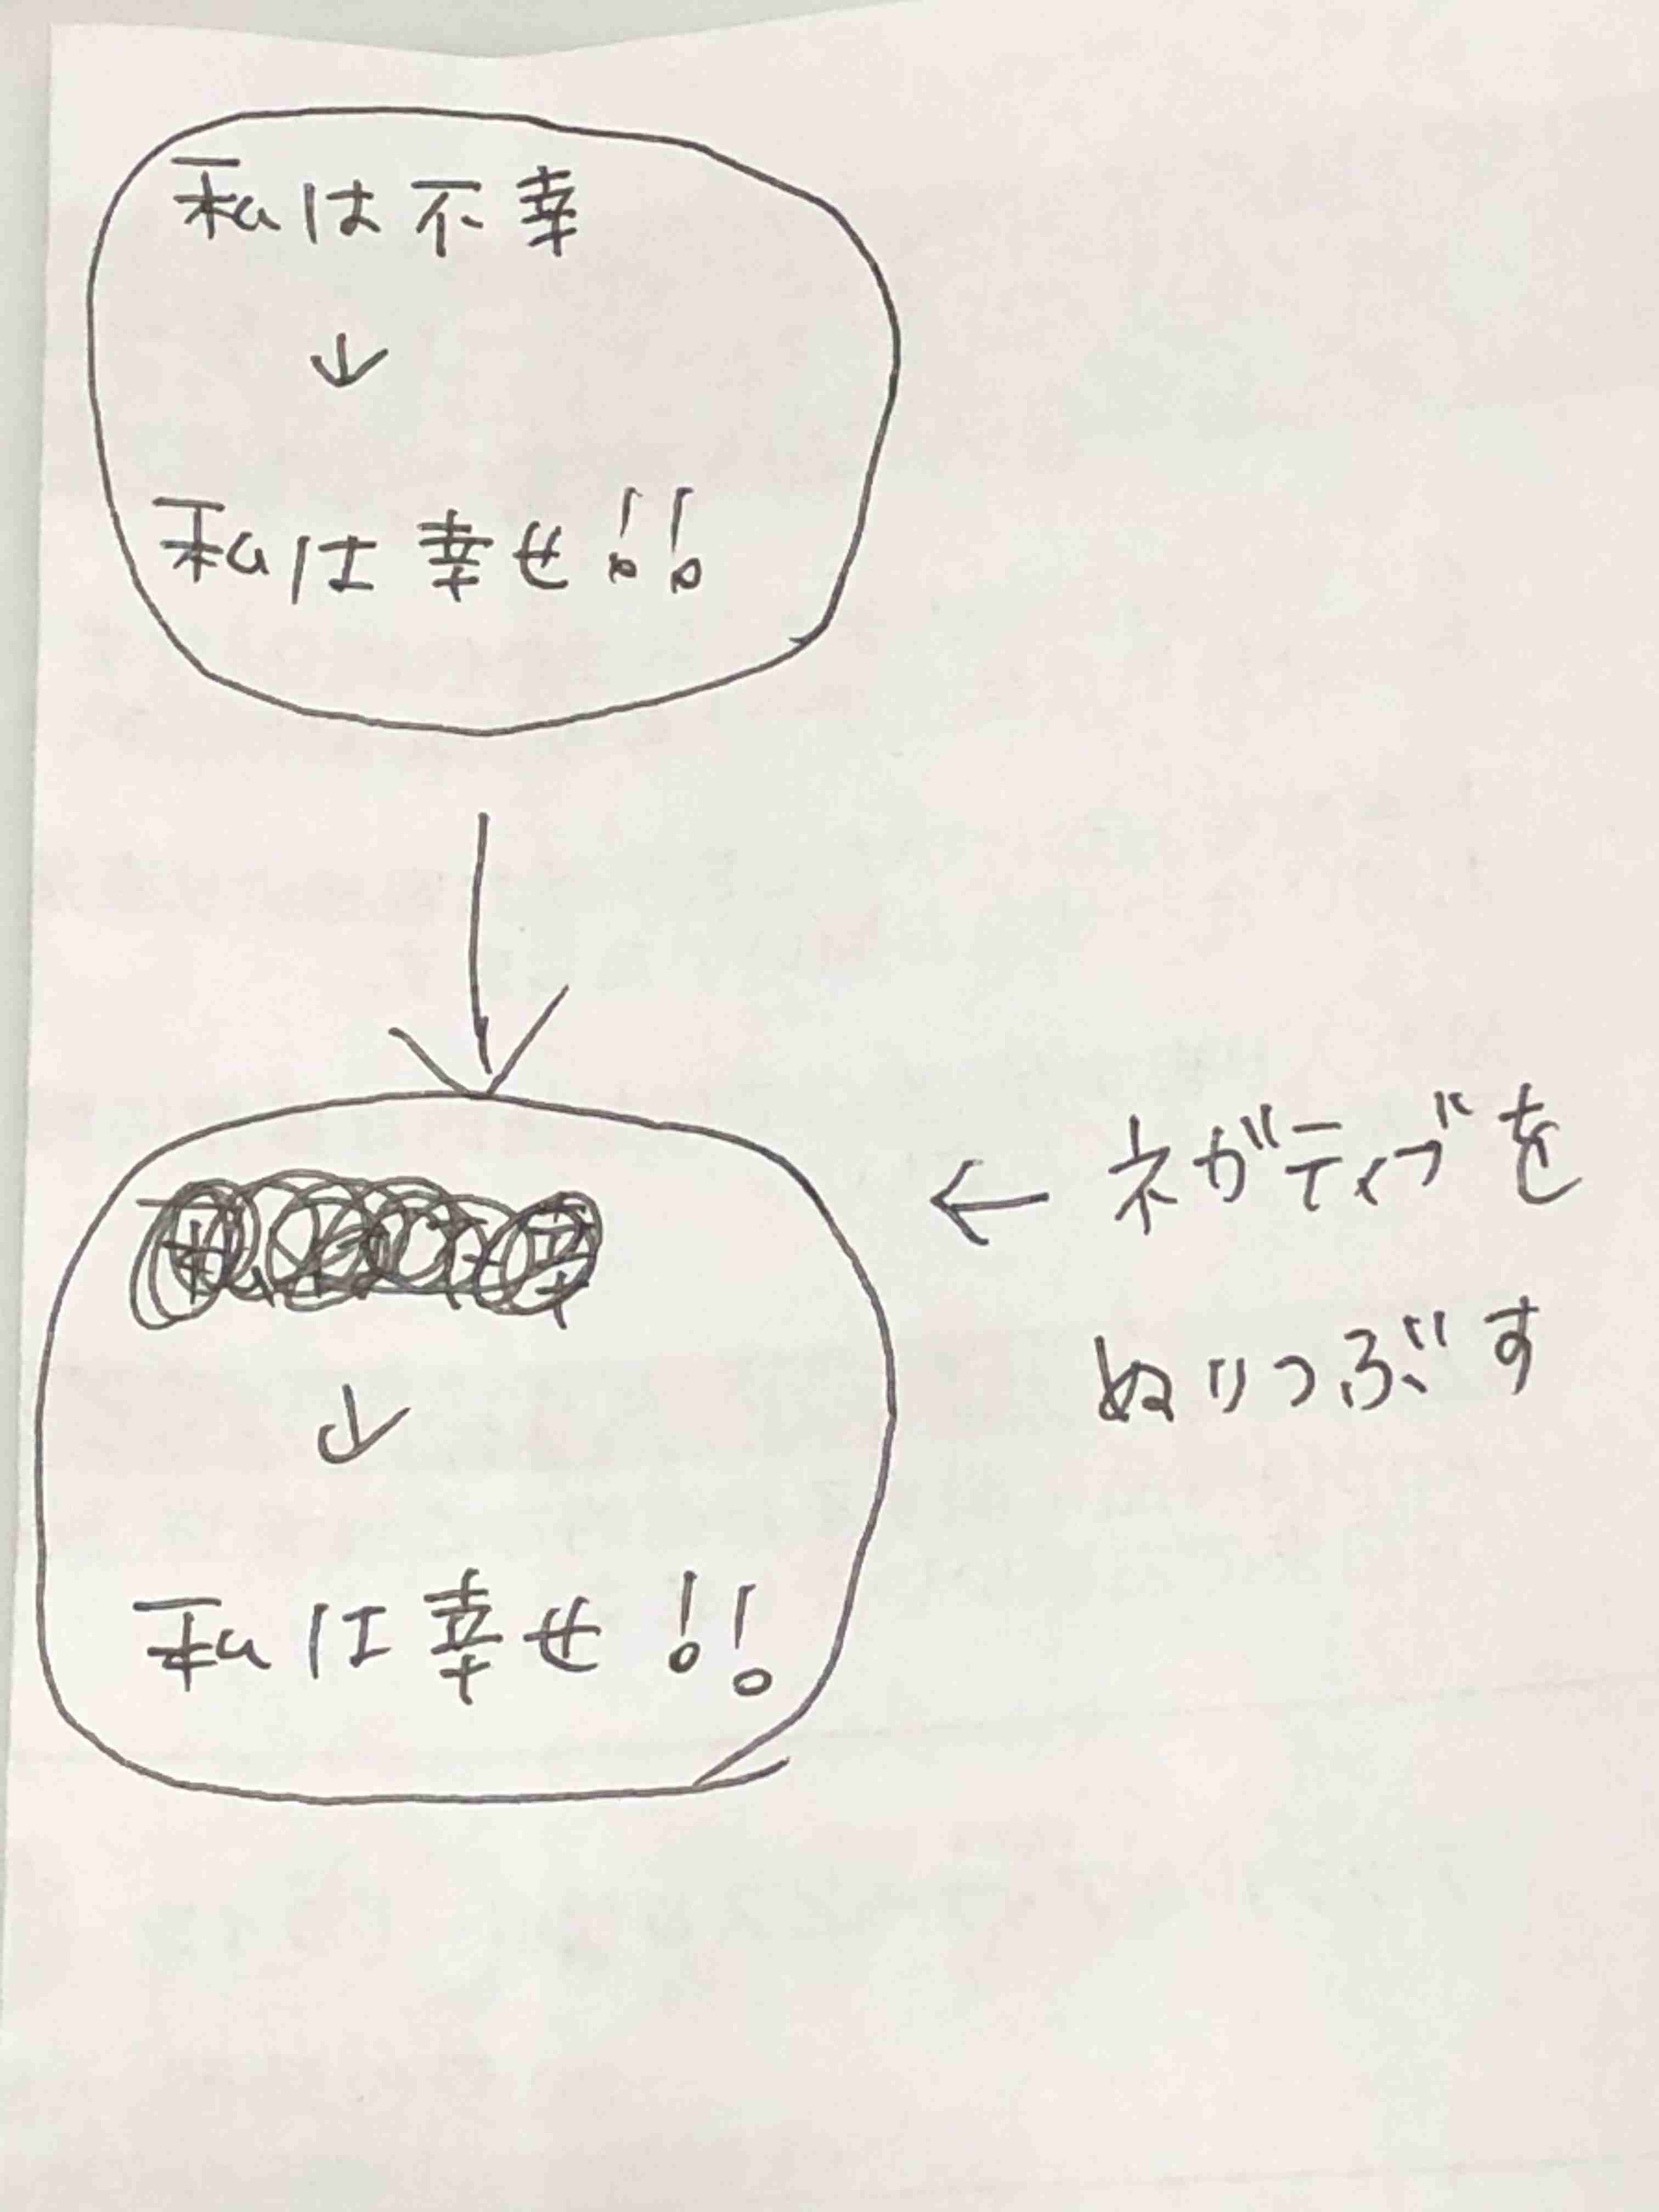 私は不幸
↓
私は幸せ!!
↓
← ネガティブを
ぬりつぶす
↓
私は幸せ!!